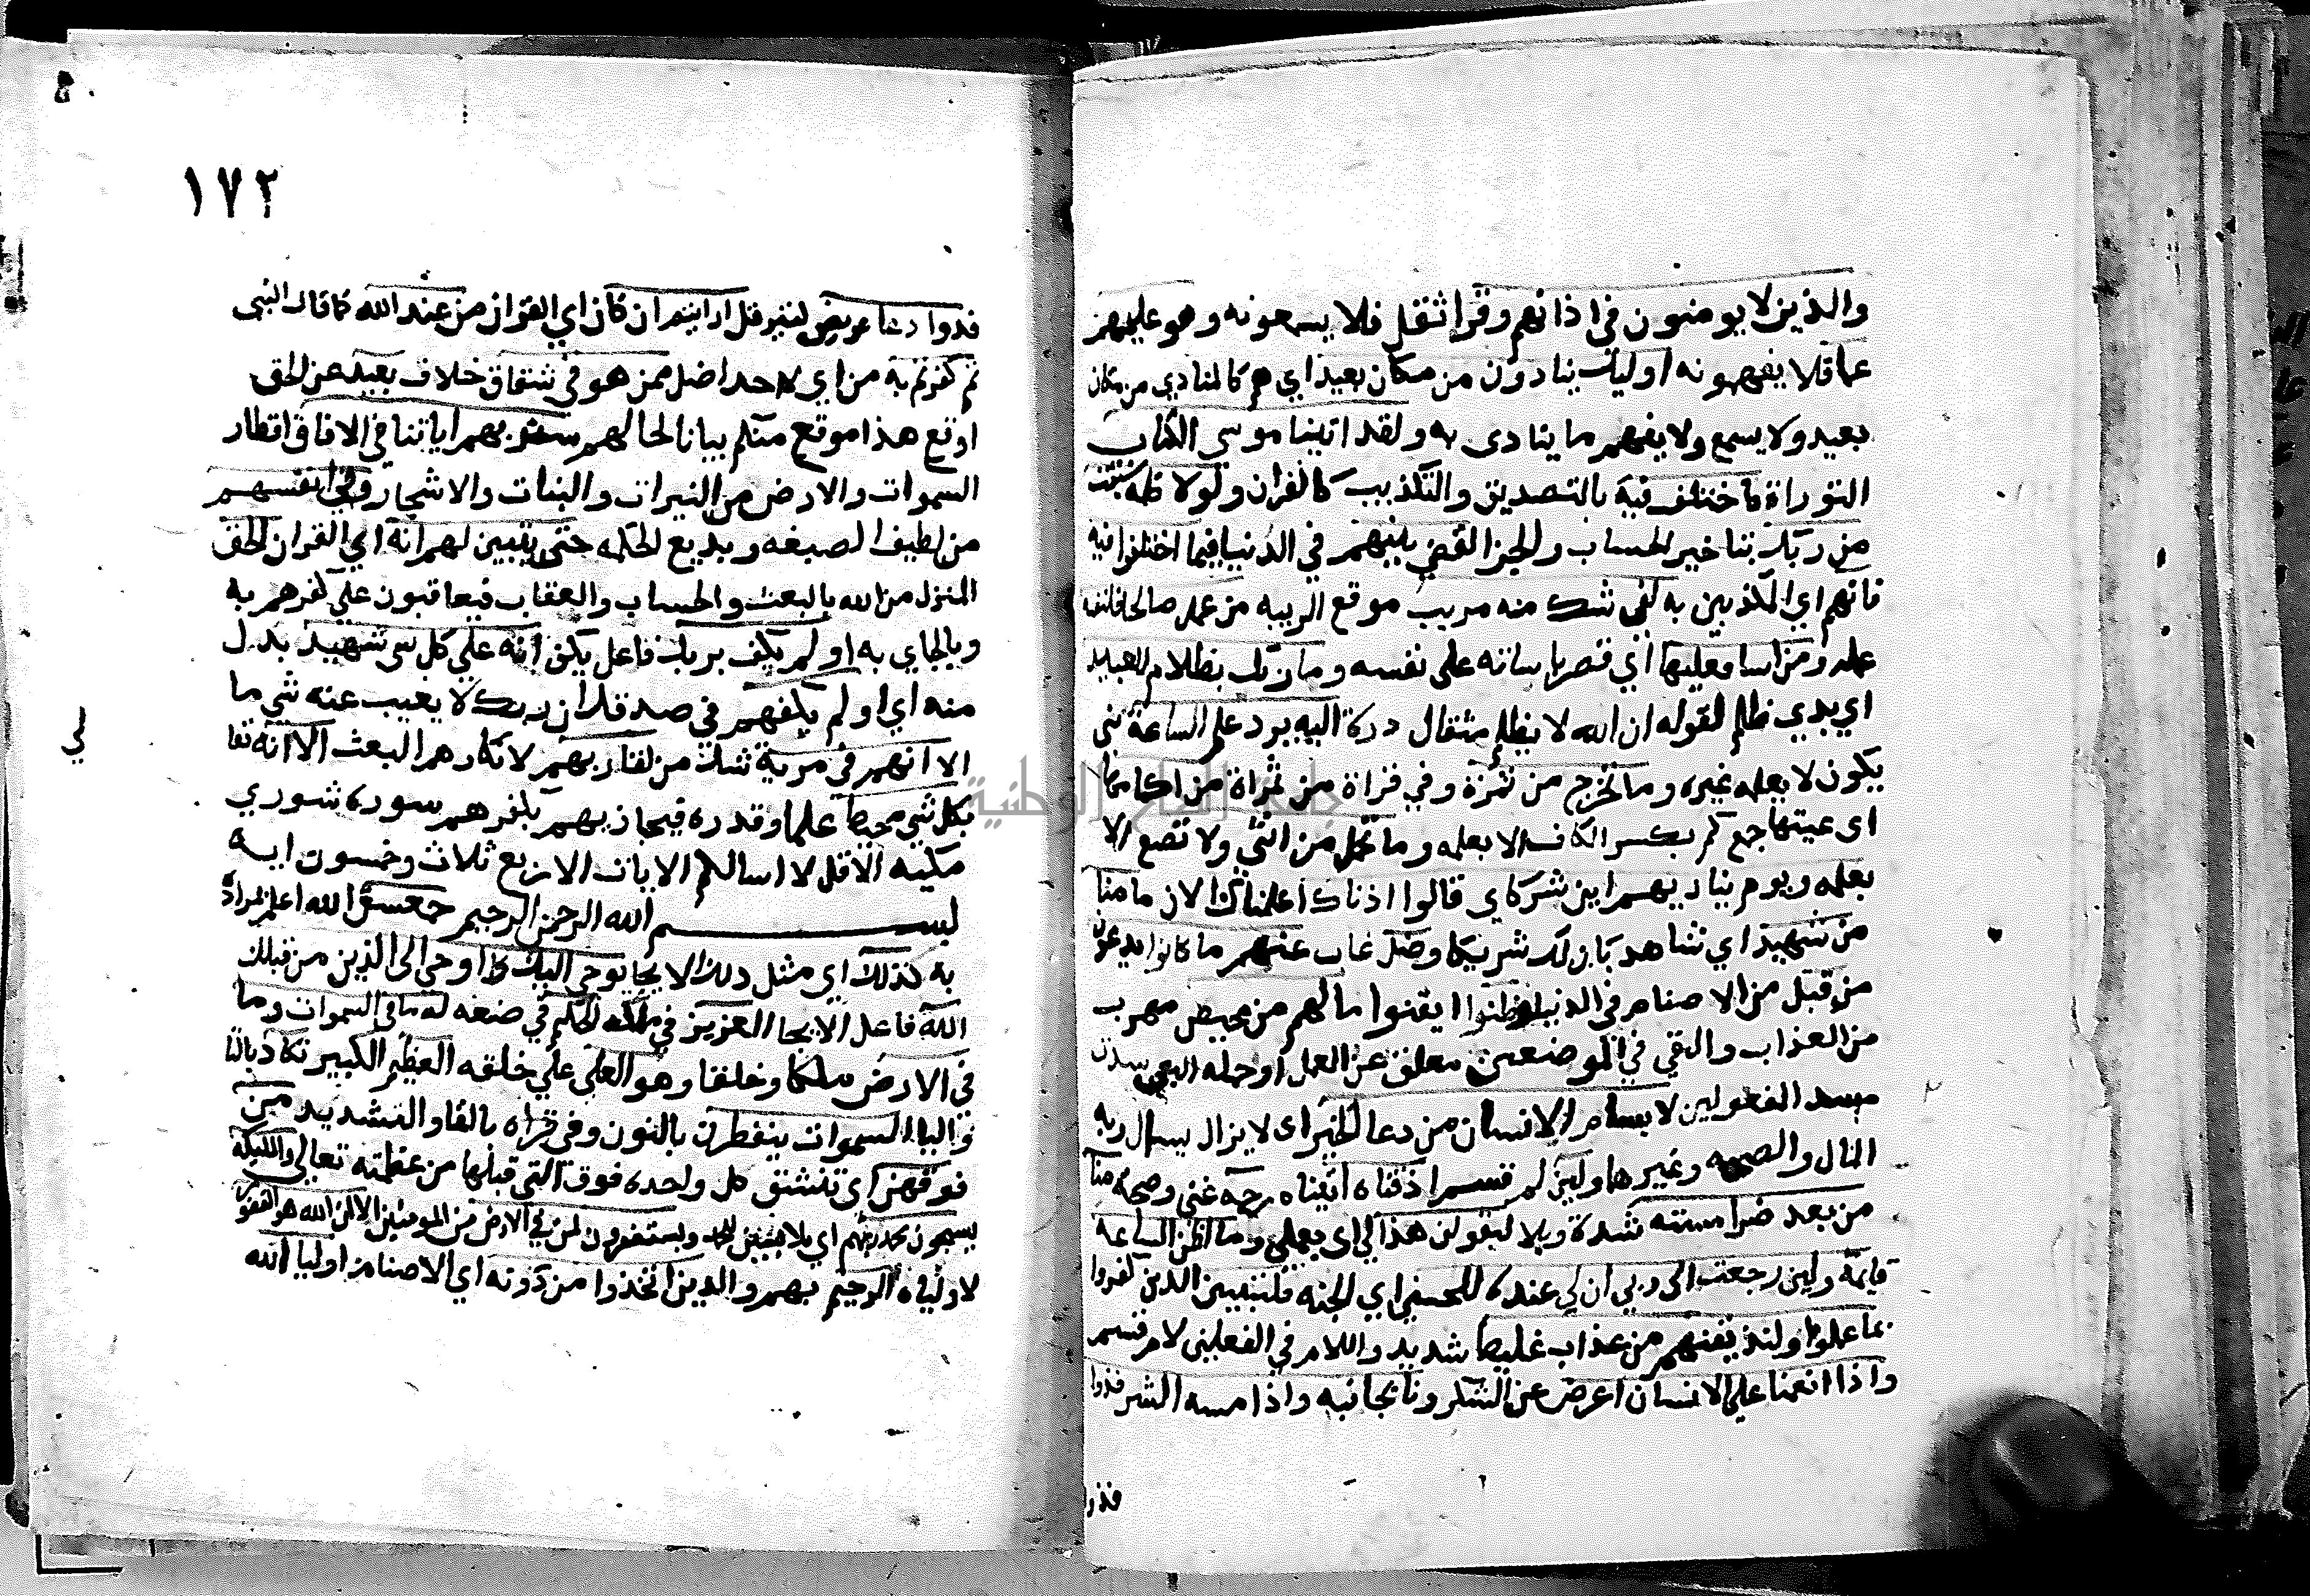 والذين لا يومنون في اذانهم وقرا ثقل فلا يسمعونه وهو عليهم
عما فلا يفهمونه اوليك ينادون من مكان بعيد اي هم كالمنادي من مكان
بعيد ولا يسمع ولا يفهم ما ينادى به ولقد اتينا موسى الكتاب
التوراة فاختلف فيه بالتصديق والتكذيب كالقران ولولا كلمة سبقت
من ربك بتاخير الحساب والجزا لقضي بينهم في الدنيا فيما اختلفوا فيه
فانهم اي المكذبين به لفي شك منه مريب موقع الريبه من عمل صالحا فلنفسه
عمله ومن اسا فعليها اي فضر اساته على نفسه وما ربك بظلام للعبيد
اي بذي ظلم لقوله ان الله لا يظلم مثقال درة اليه يرد علم الساعة متى
يكون لا يعلمه غيره وما تخرج من ثمرة وفي قراة من ثمراة من اكمامها
اى عيتها جمع كم بكسر الكاف الا بعلمه وما تحمل من انثى ولا تضع الا
بعلمه ويوم يناديهم اين شركاي قالوا اذناك اعلمناك الان ما منا
من شهيد اي شاهد بان لك شريكا وضل غاب عنهم ما كانوا يدعون
من قبل من الاصنام في الدنيا وظنوا ايقنوا ما لهم من محيص مهرب
من العذاب والنفي في الموضعين معلق عن العمل او جمله النفي سدت
مسد المفعولين لا يسام الانسان من دعا الخير اى لا يزال يسال ربه
المال والصحه وغيرها ولين لم قسم اذقناه اتيناه رحمة غنى وصحة منا
من بعد ضرا مسته شدة وبلا ليقولن هذا لي اى بعملي وما اظن الساعة
قايمة ولين رجعت الى ربي ان لي عنده للحسنى اي الجنه فلننبين الذين كفروا
بما عملوا ولنذيقنهم من عذاب غليظ شديد واللام في الفعلين لام قسم
واذا انعمنا على الانسان اعرض عن الشكر ونا بجانبه واذا مسه الشر فذوا
فذو
١٧٢
فذوا دعا عريض كثير قل ارايتم ان كان اي القران من عند الله كما قال النبي
ثم كفرتم به من اي لا احد اضل ممن هو في شقاق خلاف بعيد عن الحق
اوقع هذا موقع منكم بيانا لحالهم سنريهم اياتنا في الافاق اقطار
السموات والارض من النيرات والنبات والاشجار وفي انفسهم
من لطيف الصنعه وبديع الحكمه حتى يتبين لهم انه اي القران الحق
المنزل من الله بالبعث والحساب والعقاب فيعاقبون على كفرهم به
وبالجاي به اولم يكف بربك فاعل يكف انه على كل شي شهيد بدل
منه اي اولم يكفهم في صدقك ان ربك لا يغيب عنه شي ما
الا انهم في مرية شك من لقا ربهم لانكارهم البعث الا انه تعا
بكل شي محيط علما وقدره فيجازيهم بكفرهم سوره شوري
مكيه الا قل لا اسالكم الايات الاربع ثلاث وخمسون ايه
بسم الله الرحمن الرحيم حمعسق الله اعلم بمراده
به كذلك اي مثل ذلك الايحا يوحي اليك كما اوحي الى الذين من قبلك
الله فاعل الايحا العزيز في ملكه الحكيم في صنعه له ما في السموات وما
في الارض ملكا وخلقا وهو العلي على خلقه العظيم الكبير تكاد بالتا
واليا السموات ينفطرن بالنون وفي قراه بالتا والتشديد من
فوقهن اى تنشق كل واحده فوق التي قبلها من عظمته تعالى والمليكة
يسبحون بحمد ربهم اي ملابسين للحمد ويستغفرون لمن في الارض من المومنين الا ان الله هو الغفور
لاوليائه الرحيم بهم والذين اتخذوا من دونه اي الاصنام اوليا الله